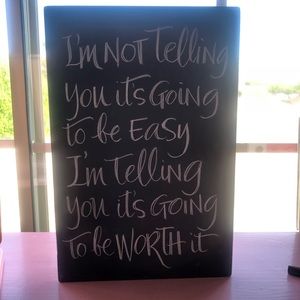 I'm NOT Telling
you it's Going
to be EASY
I'm Telling
you it's GOING
to be WORTH it